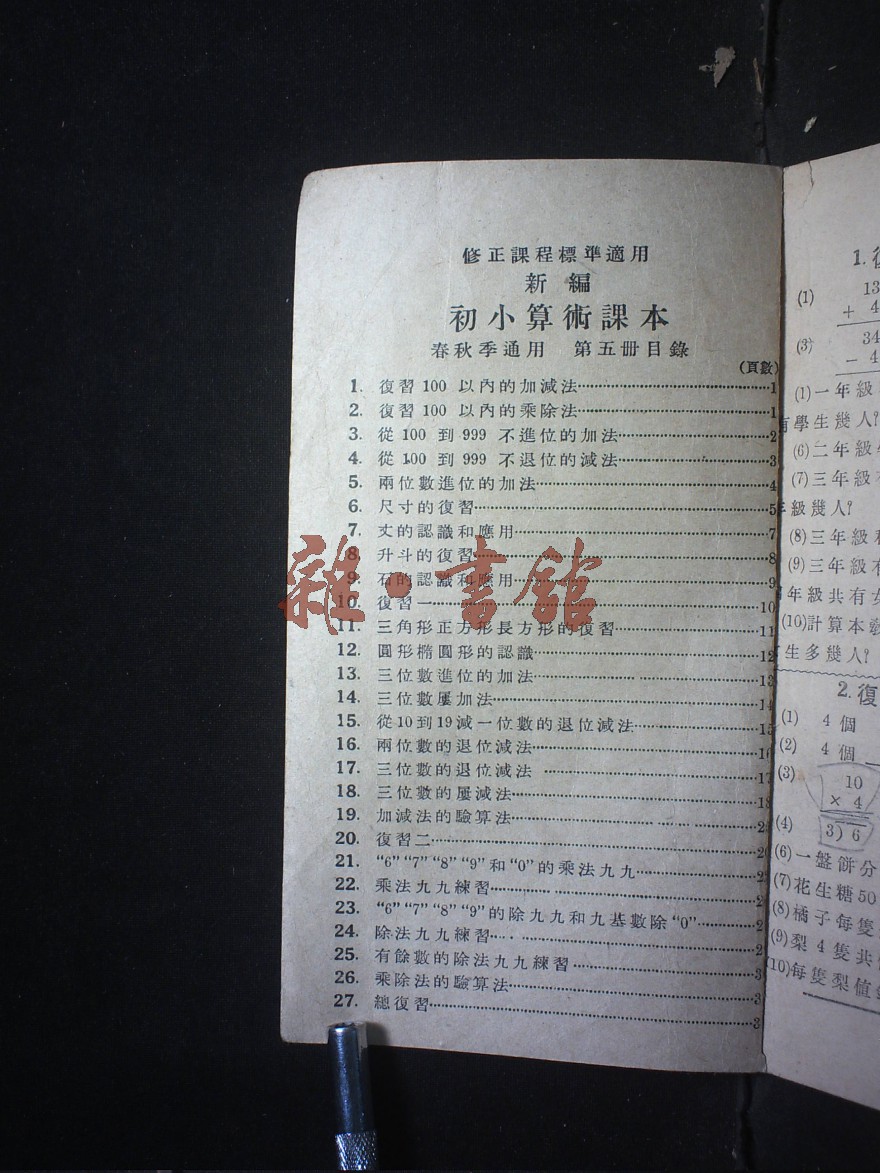 修正課程標準適用
新編
初小算術課本
春秋季通用 第五册目錄
(頁數)
1. 復習 100 以內的加減法…1
2. 復習 100 以內的乘除法…1
3. 從 100 到 999 不進位的加法…2
4. 從 100 到 999 不退位的減法…3
5. 兩位數進位的加法…4
6. 尺寸的復習…5
7. 丈的認識和應用…7
8. 升斗的復習…8
9. 石的認識和應用…9
10. 復習一…10
11. 三角形正方形長方形的復習…11
12. 圓形橢圓形的認識…12
13. 三位數進位的加法…13
14. 三位數屢加法…14
15. 從10到19減一位數的退位減法…15
16. 兩位數的退位減法…16
17. 三位數的退位減法…17
18. 三位數的屢減法…18
19. 加減法的驗算法…2
20. 復習二…2
21. “6”“7”“8”“9”和“0”的乘法九九…2
22. 乘法九九練習…2
23. “6”“7”“8”“9”的除九九和九基數除“0”…2
24. 除法九九練習…2
25. 有餘數的除法九九練習…3
26. 乘除法的驗算法…3
27. 總復習…3
雜·書館
1. 復
(1) 13
+ 4
(3) 34
− 4
(1)一年級
有學生幾人?
(6)二年級
(7)三年級
年級幾人?
(8)三年級
(9)三年級有
年級共有女
(10)計算本
生多幾人?
2. 復
(1) 4 個
(2) 4 個
(3) 10
× 4
(4) 3)6
(6)一盤餅分
(7)花生糖50
(8)橘子每隻
(9)梨 4 隻共
(10)每隻梨值